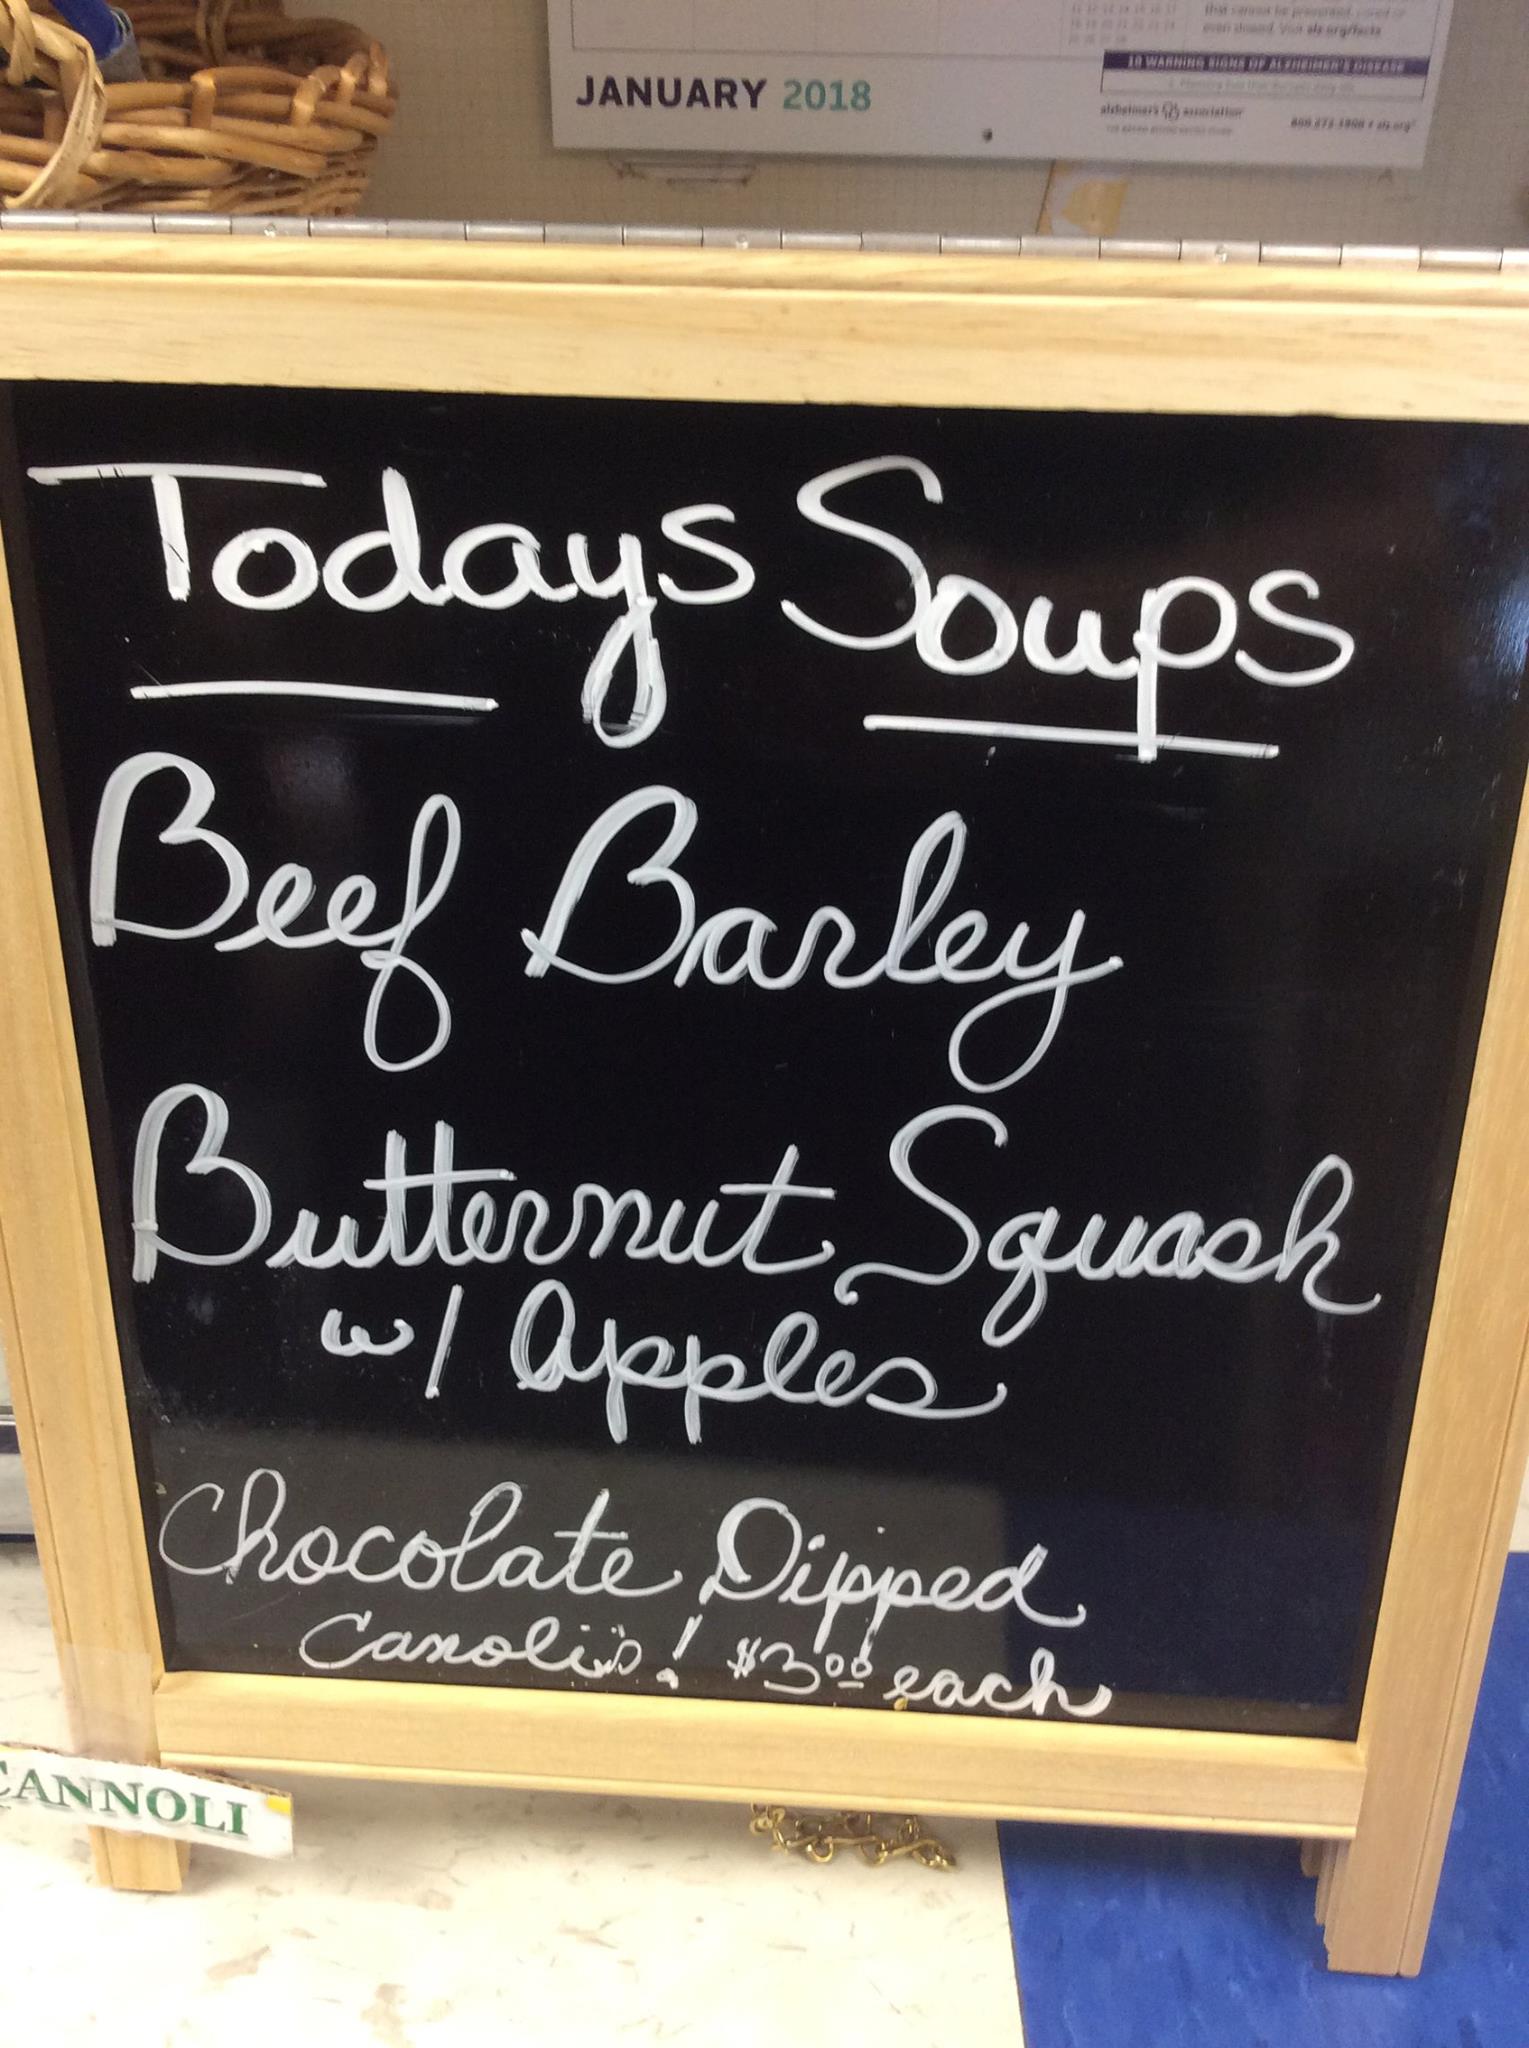 that cannot be prevented, cured or
even slowed. Visit alz.org/facts
JANUARY 2018
10 WARNING SIGNS OF ALZHEIMER'S DISEASE
alzheimer's association
800.272.3900 • alz.org
Todays Soups
Beef Barley
Butternut Squash
w/ Apples
Chocolate Dipped
Canoli's! $3.00 each
CANNOLI